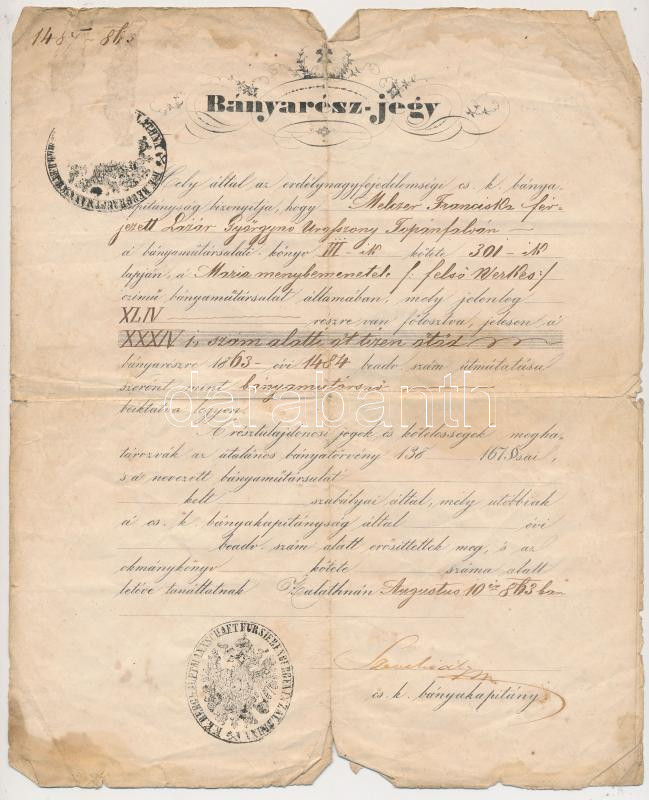 1484 - 863
Bányarész-jegy
Mely által az erdélynagyfejedelemségi cs. k. bánya
kapitányság bizonyitja, hogy Melczer Franciska fér-
jezett Lázár Györgynő Topánfalván
a bányamütársulati könyv III-ik kötete 301-ik
lapján, a Maria menybemenetele /: felső Verkes:/
czimü bányamütársulat állomában, mely jelenleg
XLIV részre van fölosztva, jelesen a
XXXIV is szám alatti öt tizen ötöd
bányarészre 1863- évi 1484 beadv. szám útmutatása
szerént mint bányamütársnő
beiktatva legyen.
A résztulajdonosi jogok és kötelességek megha-
tározvák az átalános bányatörvény 138 167 §sai,
s a nevezett bányamütársulat
kelt szabályai által, mely utóbbiak
a cs. k. bányakapitányság által évi
beadv. szám alatt erősittettek meg, s az
okmánykönyv kötete száma alatt
letéve tanáltatnak Zalathnán Augustus 10én 863ban
cs. k. bányakapitány
K.K. BERGHAUPTMANNSCHAFT FÜR SIEBENBÜRGEN Z. ZALATHNA
darabanth